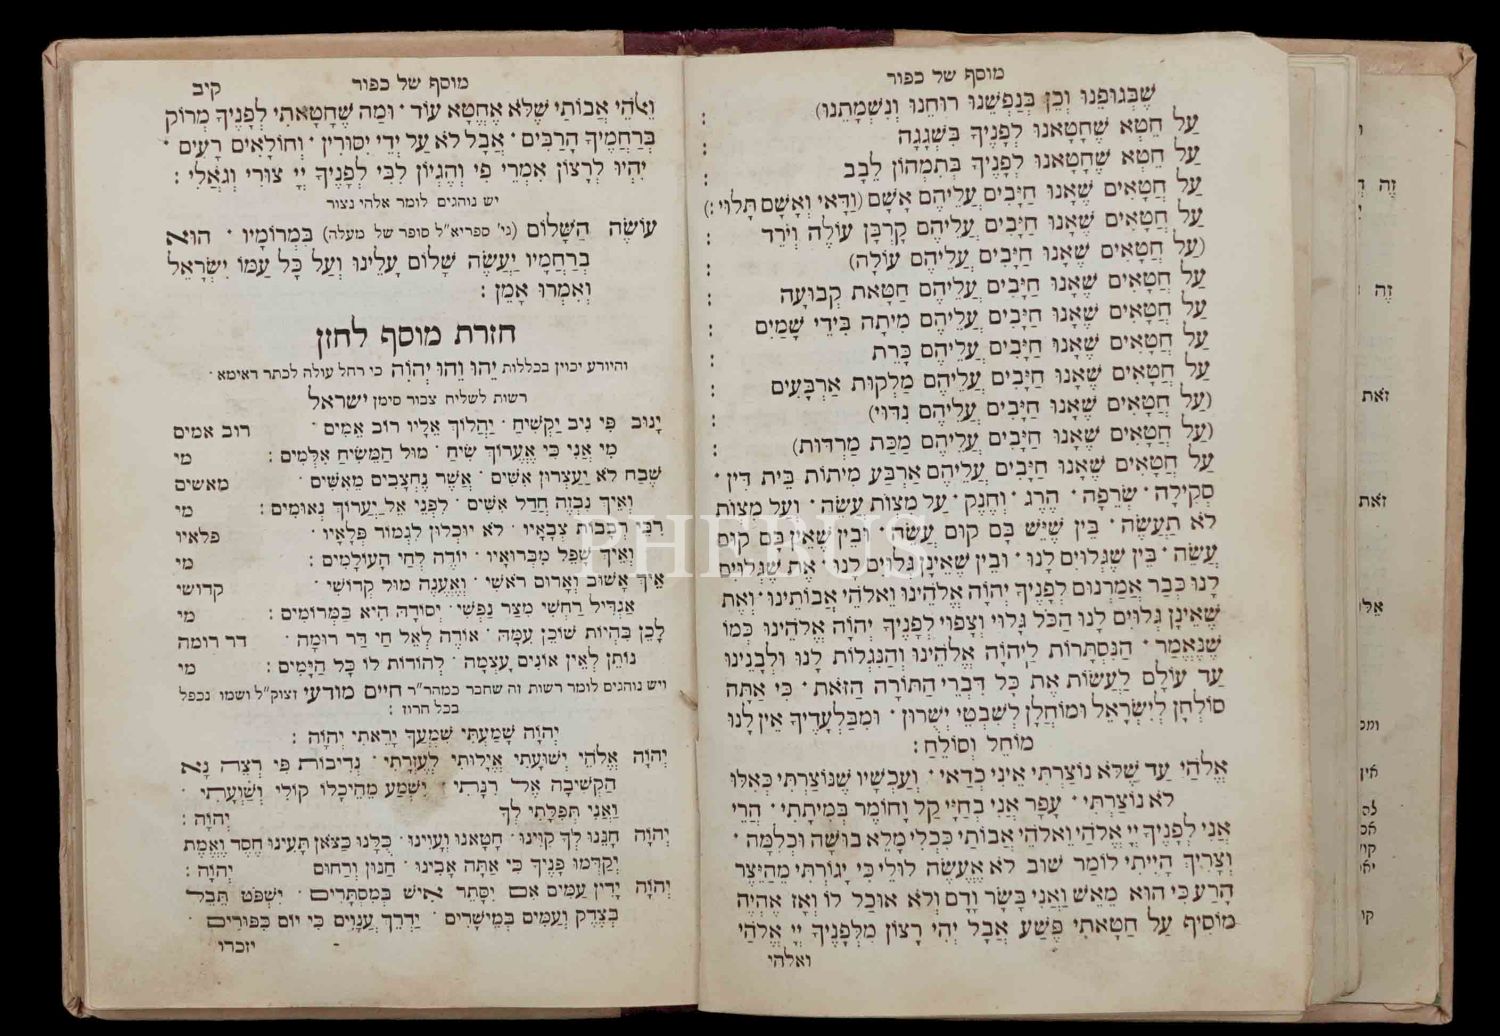 מוסף של כפור
שֶׁבְּגוּפֵנוּ וְכֵן בְּנַפְשֵׁנוּ רוּחֵנוּ וְנִשְׁמָתֵנוּ)
עַל חֵטְא שֶׁחָטָאנוּ לְפָנֶיךָ בִּשְׁגָגָה :
עַל חֵטְא שֶׁחָטָאנוּ לְפָנֶיךָ בְּתִמְהוֹן לֵבָב :
עַל חֲטָאִים שֶׁאָנוּ חַיָּבִים עֲלֵיהֶם אָשָׁם (וַדָּאִי וְאָשָׁם תָּלוּי :)
עַל חֲטָאִים שֶׁאָנוּ חַיָּבִים עֲלֵיהֶם קָרְבָּן עוֹלֶה וְיֹרֵד :
(עַל חֲטָאִים שֶׁאָנוּ חַיָּבִים עֲלֵיהֶם עוֹלָה) :
עַל חֲטָאִים שֶׁאָנוּ חַיָּבִים עֲלֵיהֶם חַטָּאת קְבוּעָה :
עַל חֲטָאִים שֶׁאָנוּ חַיָּבִים עֲלֵיהֶם מִיתָה בִּידֵי שָׁמַיִם :
עַל חֲטָאִים שֶׁאָנוּ חַיָּבִים עֲלֵיהֶם כָּרֵת :
עַל חֲטָאִים שֶׁאָנוּ חַיָּבִים עֲלֵיהֶם מַלְקוּת אַרְבָּעִים :
(עַל חֲטָאִים שֶׁאָנוּ חַיָּבִים עֲלֵיהֶם נִדּוּי) :
(עַל חֲטָאִים שֶׁאָנוּ חַיָּבִים עֲלֵיהֶם מַכַּת מַרְדּוּת) :
עַל חֲטָאִים שֶׁאָנוּ חַיָּבִים עֲלֵיהֶם אַרְבַּע מִיתוֹת בֵּית דִּין ·
סְקִילָה · שְׂרֵפָה · הֶרֶג · וְחֶנֶק · עַל מִצְוֹת עֲשֵׂה · וְעַל מִצְוֹת
לֹא תַעֲשֶׂה · בֵּין שֶׁיֵּשׁ בָּם קוּם עֲשֵׂה · וּבֵין שֶׁאֵין בָּם קוּם
עֲשֵׂה · בֵּין שֶׁגְּלוּיִם לָנוּ · וּבֵין שֶׁאֵינָן גְּלוּיִם לָנוּ · אֶת שֶׁגְּלוּיִם
לָנוּ כְּבָר אֲמַרְנוּם לְפָנֶיךָ יְהוָֹה אֱלֹהֵינוּ וֵאלֹהֵי אֲבוֹתֵינוּ · וְאֶת
שֶׁאֵינָן גְּלוּיִם לָנוּ הַכֹּל גָּלוּי וְצָפוּי לְפָנֶיךָ יְהוָֹה אֱלֹהֵינוּ כְּמוֹ
שֶׁנֶּאֱמַר · הַנִּסְתָּרוֹת לַיְהוָֹה אֱלֹהֵינוּ וְהַנִּגְלוֹת לָנוּ וּלְבָנֵינוּ
עַד עוֹלָם לַעֲשׂוֹת אֶת כָּל דִּבְרֵי הַתּוֹרָה הַזֹּאת · כִּי אַתָּה
סוֹלְחָן לְיִשְׂרָאֵל וּמוֹחֲלָן לְשִׁבְטֵי יְשֻׁרוּן · וּמִבַּלְעָדֶיךָ אֵין לָנוּ
מוֹחֵל וְסוֹלֵחַ :
אֱלֹהַי עַד שֶׁלֹּא נוֹצַרְתִּי אֵינִי כְדַאי · וְעַכְשָׁיו שֶׁנּוֹצַרְתִּי כְּאִלּוּ
לֹא נוֹצַרְתִּי · עָפָר אֲנִי בְּחַיָּי קַל וָחוֹמֶר בְּמִיתָתִי · הֲרֵי
אֲנִי לְפָנֶיךָ יְיָ אֱלֹהַי וֵאלֹהֵי אֲבוֹתַי כִּכְלִי מָלֵא בוּשָׁה וּכְלִמָּה ·
וְצָרִיךְ הָיִיתִי לוֹמַר שׁוּב לֹא אֶעֱשֶׂה לוּלֵי כִּי יָגוֹרְתִּי מֵהַיֵּצֶר
הָרַע כִּי הוּא מֵאֵשׁ וַאֲנִי בָּשָׂר וָדָם וְלֹא אוּכַל לוֹ וְאָז אֶהְיֶה
מוֹסִיף עַל חַטָּאתִי פֶּשַׁע אֲבָל יְהִי רָצוֹן מִלְּפָנֶיךָ יְיָ אֱלֹהַי
ואלהי
מוסף של כפור
קיב
וֵאלֹהֵי אֲבוֹתַי שֶׁלֹּא אֶחֱטָא עוֹד · וּמַה שֶּׁחָטָאתִי לְפָנֶיךָ מְרוֹק
בְּרַחֲמֶיךָ הָרַבִּים · אֲבָל לֹא עַל יְדֵי יִסּוּרִין · וְחוֹלָאִים רָעִים ·
יִהְיוּ לְרָצוֹן אִמְרֵי פִי וְהֶגְיוֹן לִבִּי לְפָנֶיךָ יְיָ צוּרִי וְגֹאֲלִי :
יש נוהגים לומר אלהי נצור
עוֹשֶׂה הַשָּׁלוֹם (גי' ספריא"ל סופר של מעלה) בִּמְרוֹמָיו · הוּא
בְּרַחֲמָיו יַעֲשֶׂה שָׁלוֹם עָלֵינוּ וְעַל כָּל עַמּוֹ יִשְׂרָאֵל
וְאִמְרוּ אָמֵן :
חזרת מוסף לחזן
והיורע יכוין בכללות יהו והו יהוה כי רחל עולה לכתר דאימא ·
רשות לשליח צבור סימן ישראל
יָנוּב פִּי נִיב יַקְשִׁיחַ · יַהֲלוֹךְ אֵלָיו רוֹב אֵמִים · רוב אמים
מִי אֲנִי כִּי אֶעֱרוֹךְ שִׂיחַ · מוּל הַמֵּשִׂיחַ אִלְּמִים : מי
שֶׁבַח לֹא יַעַצְרוּן אִשִּׁים · אֲשֶׁר נֶחְצָבִים מֵאִשִּׁים · מאשים
וְאֵיךְ נִבְזֶה חֲדַל אִשִּׁים · לִפְנֵי אֵל יַעֲרוֹךְ נְאוּמִים : מי
רִבֵּי רִבְבוֹת צְבָאָיו · לֹא יוּכְלוּן לִגְמוֹר פְּלָאָיו · פלאיו
וְאֵיךְ שְׁפַל מִבְּרוּאָיו · יוֹדֶה לְחַי הָעוֹלָמִים : מי
אֵיךְ אָשׁוּב וְאָרוּם רֹאשִׁי · וְאֶעֱנֶה מוּל קְדוֹשִׁי · קדושי
אַגְדִּיל רַחְשִׁי מִצַּר נַפְשִׁי · יְסוֹדָהּ הִיא בַּמְּרוֹמִים : מי
לָכֵן בִּהְיוֹת שׁוֹכֵן עִמָּהּ · אוֹדֶה לְאֵל חַי דַּר רוּמָה · דר רומה
נוֹתֵן לְאֵין אוֹנִים עָצְמָה · לְהוֹדוֹת לוֹ כָּל הַיָּמִים : מי
ויש נוהגים לומר רשות זה שחבר כמהר"ר חיים מודעי זצוק"ל ושמו נכפל
בכל חרוז :
יְהוָֹה שָׁמַעְתִּי שִׁמְעֲךָ יָרֵאתִי יְהוָֹה :
יְהוָֹה אֱלֹהֵי יְשׁוּעָתִי אֱיָלוּתִי לְעֶזְרָתִי · נְדִיבוֹת פִּי רְצֵה נָא
הַקְשִׁיבָה אֶל רִנָּתִי · יִשְׁמַע מֵהֵיכָלוֹ קוֹלִי וְשַׁוְעָתִי ·
וַאֲנִי תְּפִלָּתִי לְךָ יְהוָֹה :
יְהוָֹה חָנֵּנוּ לְךָ קִוִּינוּ · חָטָאנוּ וְעָוִינוּ · כֻּלָּנוּ כַּצֹּאן תָּעִינוּ חֶסֶד וֶאֱמֶת
יְקַדְּמוּ פָנֶיךָ כִּי אַתָּה אָבִינוּ · חַנּוּן וְרַחוּם יְהוָֹה :
יְהוָֹה יָדִין עַמִּים אִם יִסָּתֵר אִישׁ בַּמִּסְתָּרִים · יִשְׁפֹּט תֵּבֵל
בְּצֶדֶק וְעַמִּים בְּמֵישָׁרִים · יַדְרֵךְ עֲנָוִים כִּי יוֹם כִּפּוּרִים ·
יזכרו
PHEBUS
זֶה
זֶה
זֹאת
זֹאת